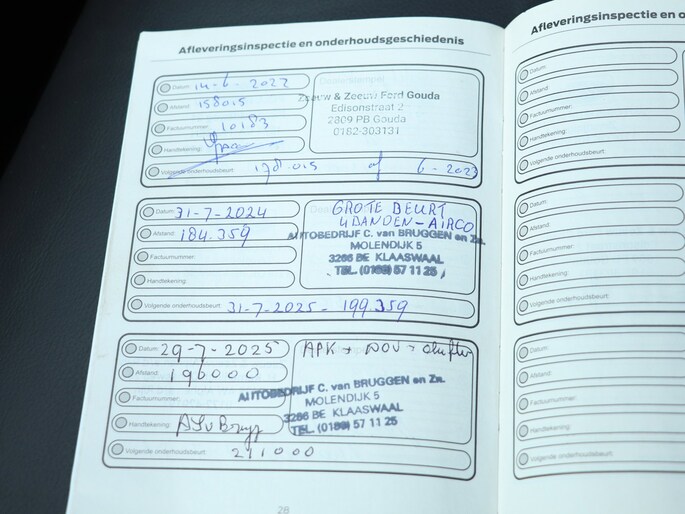 Afleveringsinspectie en onderhoudsgeschiedenis
Datum: 14-6-2022
Afstand: 158015
Factuurnummer: 10183
Handtekening:
Volgende onderhoudsbeurt: 178.015 of 6-2023
Zeeuw & Zeeuw Ford Gouda
Edisonstraat 2
2809 PB Gouda
0182-303131
Datum: 31-7-2024
Afstand: 184.359
Factuurnummer:
Handtekening:
Volgende onderhoudsbeurt: 31-7-2025 - 199.359
GROTE BEURT
4 BANDEN - AIRCO
AUTOBEDRIJF C. van BRUGGEN en Zn.
MOLENDIJK 5
3286 BE KLAASWAAL
TEL. (0186) 57 11 25
Datum: 29-7-2025
Afstand: 196000
Factuurnummer:
Handtekening:
Volgende onderhoudsbeurt: 211000
APK +
AUTOBEDRIJF C. van BRUGGEN en Zn.
MOLENDIJK 5
3286 BE KLAASWAAL
TEL. (0186) 57 11 25
28
Afleveringsinspectie en o
Datum:
Afstand:
Factuurnummer:
Handtekening:
Volgende onderhoudsbeurt:
Datum:
Afstand:
Factuurnummer:
Handtekening:
Volgende onderhoudsbeurt:
Datum:
Afstand:
Factuurnummer:
Handtekening:
Volgende onderhoudsbeurt: